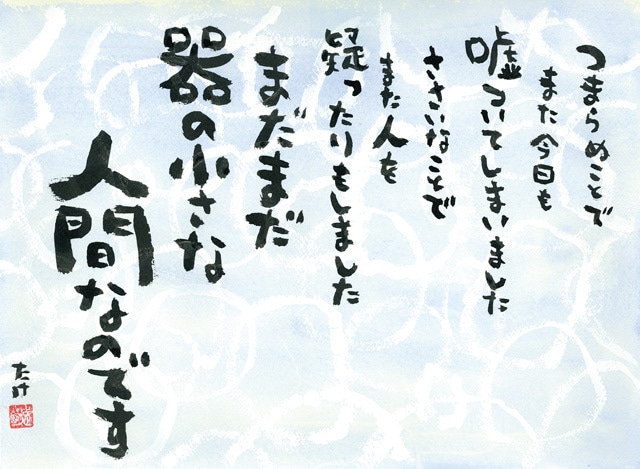 つまらぬことで
また今日も
嘘ついてしまいました
ささいなことで
また人を
疑ったりもしました
まだまだ
器の小さな
人間なのです
たけ